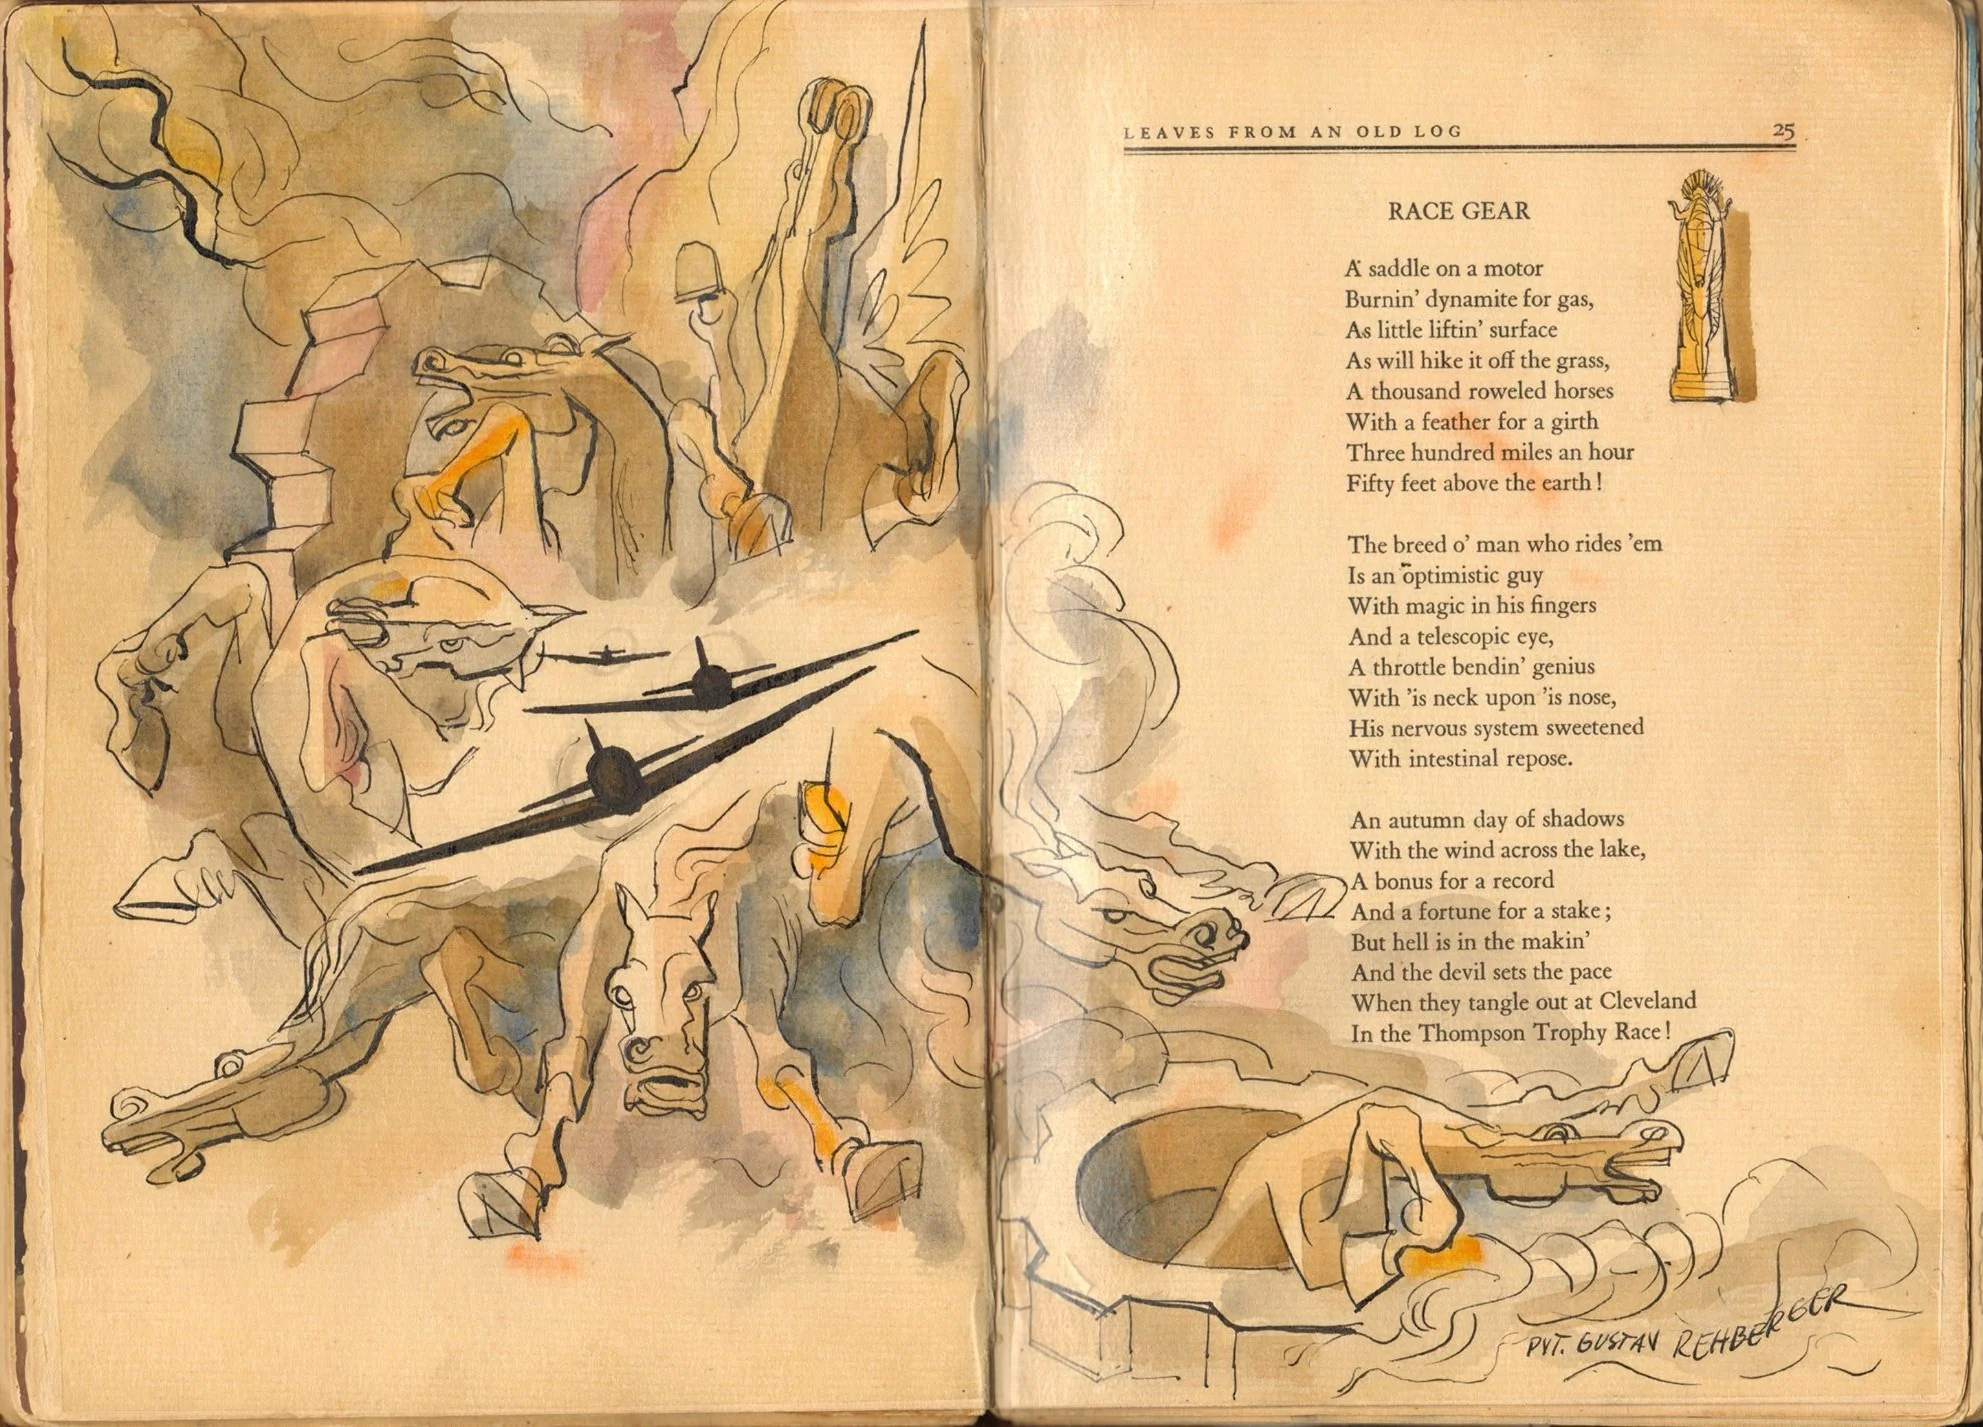 LEAVES FROM AN OLD LOG 25
RACE GEAR
A saddle on a motor
Burnin' dynamite for gas,
As little liftin' surface
As will hike it off the grass,
A thousand roweled horses
With a feather for a girth
Three hundred miles an hour
Fifty feet above the earth!
The breed o' man who rides 'em
Is an optimistic guy
With magic in his fingers
And a telescopic eye,
A throttle bendin' genius
With 'is neck upon 'is nose,
His nervous system sweetened
With intestinal repose.
An autumn day of shadows
With the wind across the lake,
A bonus for a record
And a fortune for a stake;
But hell is in the makin'
And the devil sets the pace
When they tangle out at Cleveland
In the Thompson Trophy Race!
PVT. GUSTAV REHBERGER